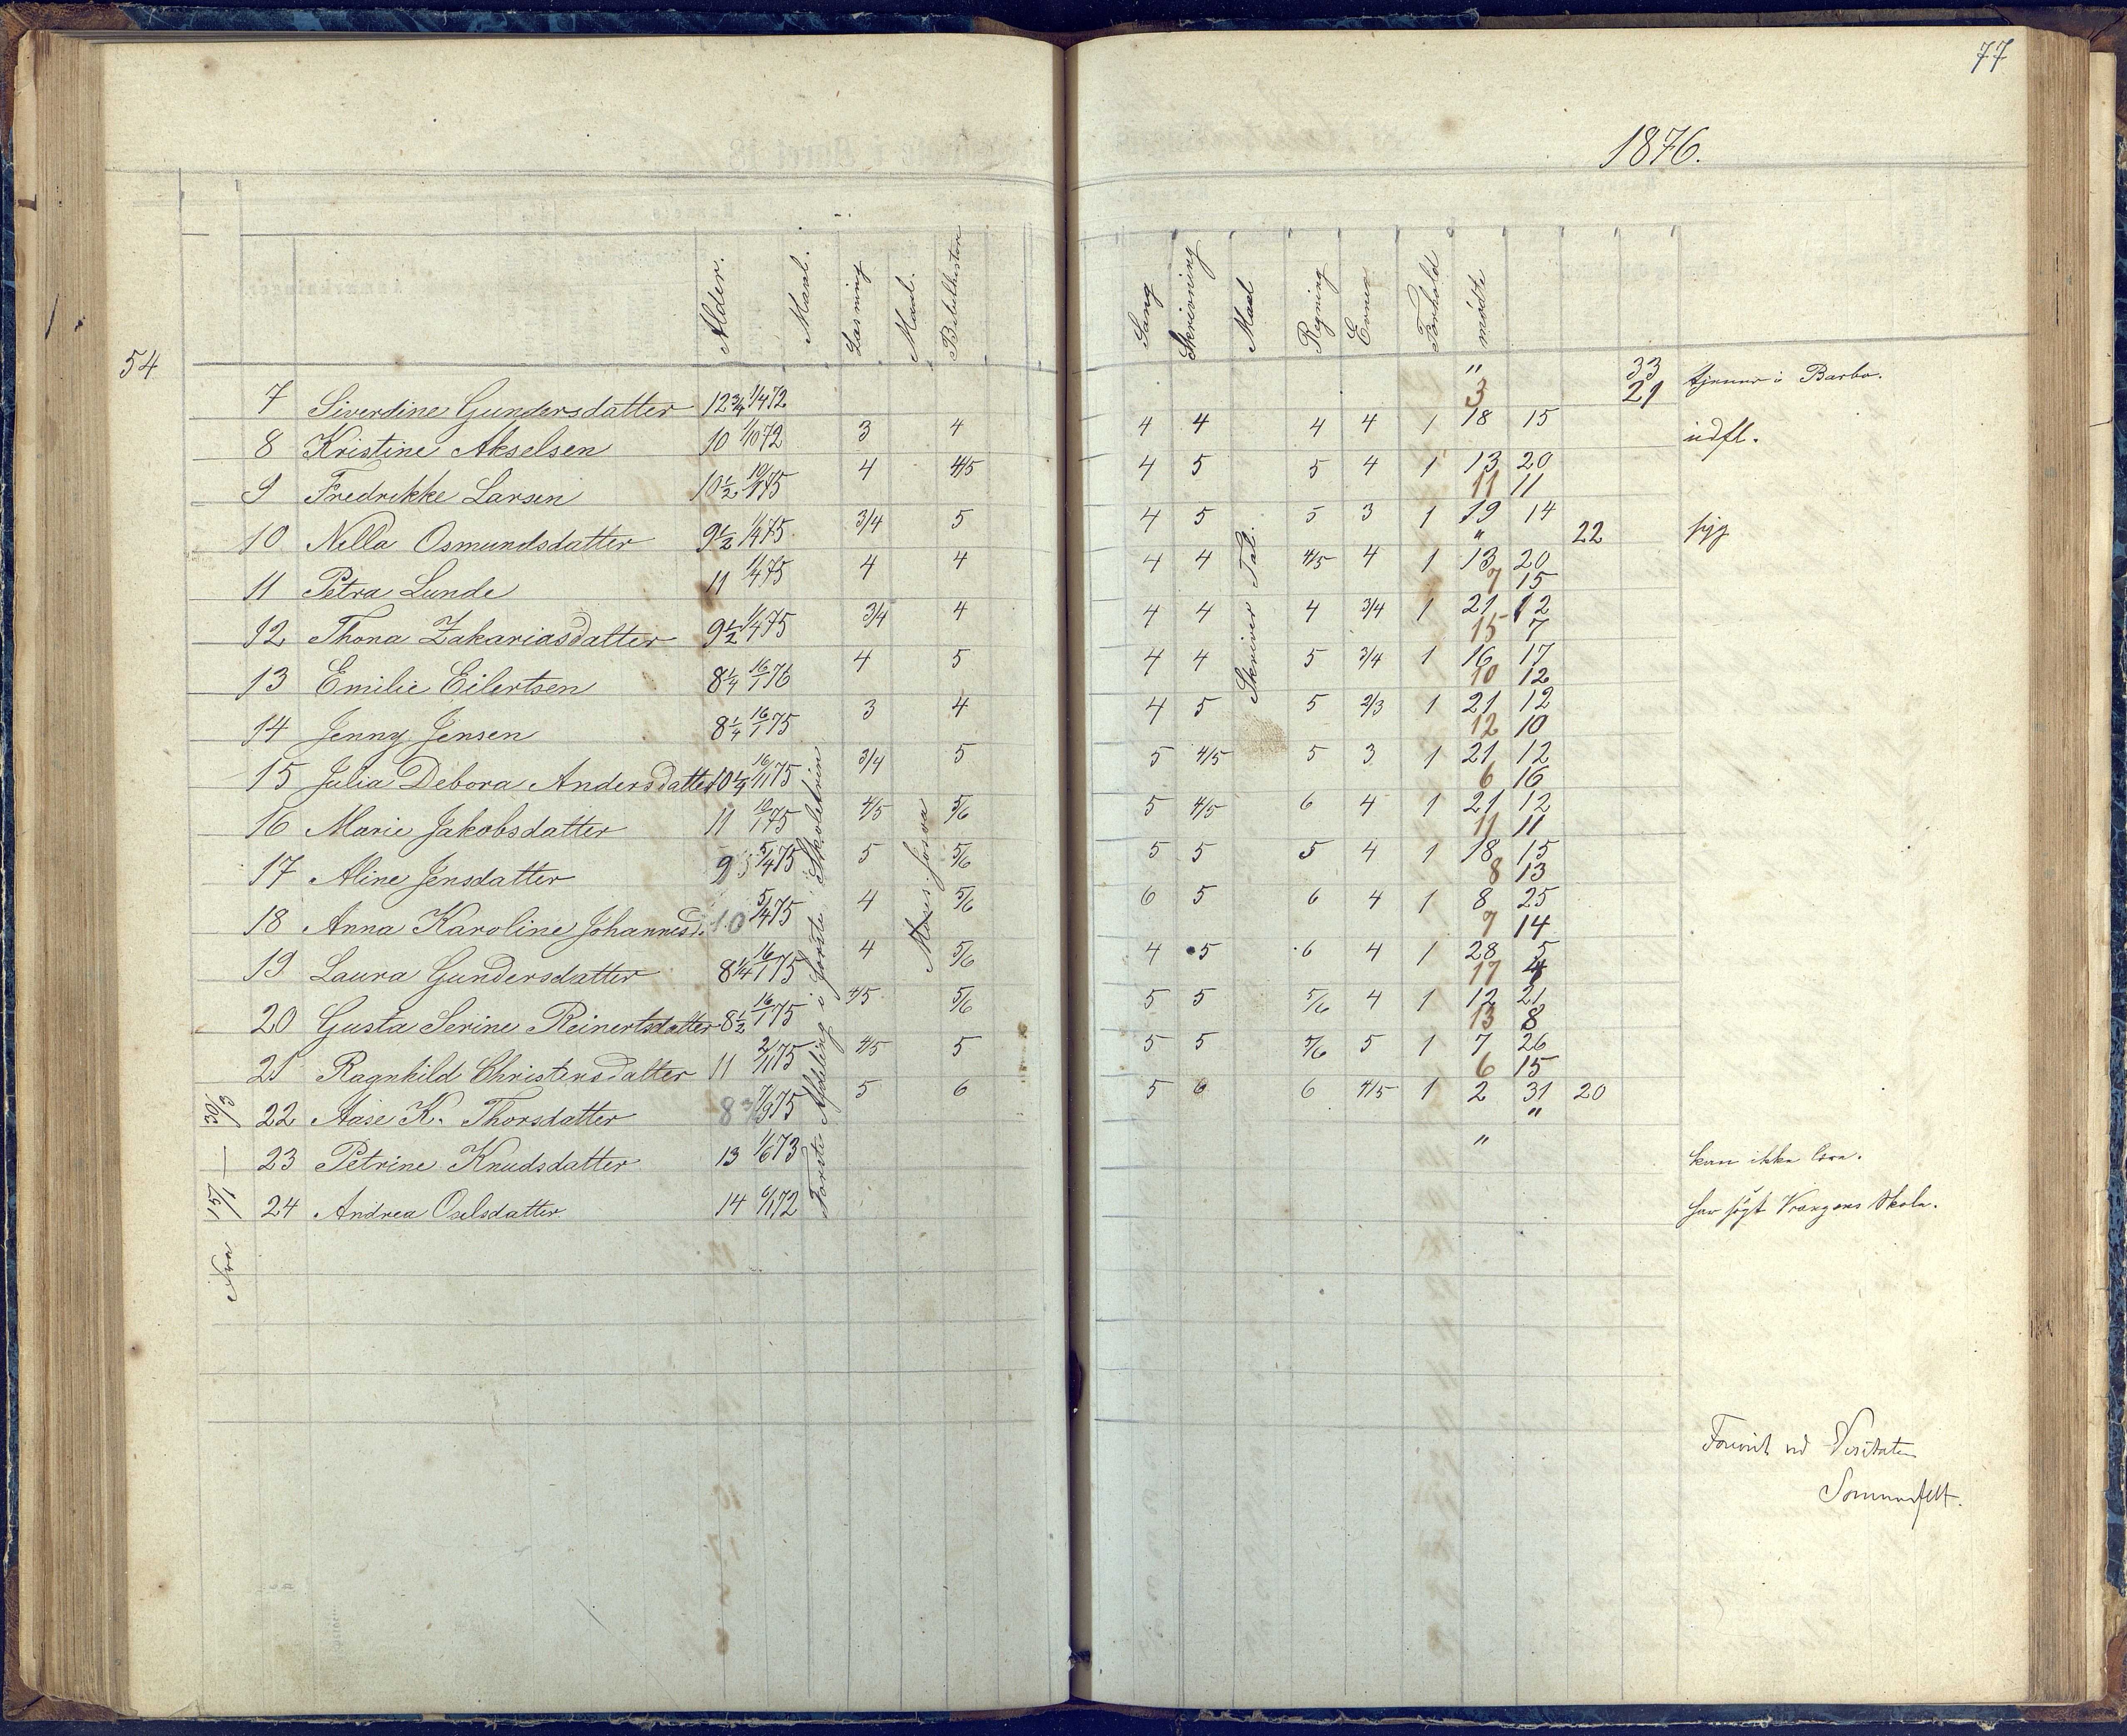 77
1876.
Alder. Maal. Læsning Maal. Bibelhistorie Sang Skrivning Maal Regning Evner Forhold mødte
54
7 Siverdine Gundersdatter 12 3/4 1/4 72 " 33 tjener i Barbo.
3 21
8 Kristine Akselsen 10 1/10 72 3 4 4 4 4 4 1 18 15 udfl.
9 Fredrikke Larsen 10 1/2 19/1 75 4 4/5 4 5 5 4 1 13 20
11 11
10 Nella Osmundsdatter 9 1/2 1/4 75 3/4 5 4 5 5 3 1 19 14 syg
" 22
11 Petra Lunde 11 1/4 75 4 4 4 4 4/5 4 1 13 20
7 15
12 Thona Zakariasdatter 9 1/2 1/4 75 3/4 4 4 4 4 3/4 1 21 12
15 7
13 Emilie Eilertsen 8 1/4 16/1 76 4 5 4 4 5 3/4 1 16 17
10 12
14 Jenny Jensen 8 1/4 16/1 75 3 4 4 5 5 2/3 1 21 12
12 10
15 Julia Debora Andersdatter 10 1/4 16/11 75 3/4 5 5 4/5 5 3 1 21 12
6 16
16 Marie Jakobsdatter 11 19/1 75 4/5 5/6 5 4/5 6 4 1 21 12
11 11
17 Aline Jensdatter 9 5/4 75 5 5/6 5 5 5 4 1 18 15
8 13
18 Anna Karoline Johannesd. 10 5/4 75 4 5/6 6 5 6 4 1 8 25
7 14
19 Laura Gundersdatter 8 1/4 16/1 75 4 5/6 4 5 6 4 1 28 5
17 4
20 Gusta Serine Reinertsdatter 8 1/2 16/1 75 4/5 5/6 5 5 5/6 4 1 12 21
13 8
21 Ragnhild Christensdatter 11 2/11 75 4/5 5 5 5 5/6 5 1 7 26
6 15
22 Aase K. Thorsdatter 8 3/4 7/9 75 5 6 5 6 6 4/5 1 2 31 20
"
23 Petrine Knudsdatter 13 1/6 73 " kan ikke læse.
24 Andrea Oselsdatter 14 6/1 72 har søgt Vrængens Skole.
Fra 15/1 — 30/3
Første Afdeling i første Skoletrin
Moses. Josva
Skriver Tal.
Foreviist ved Visitatsen
Sommerfelt.